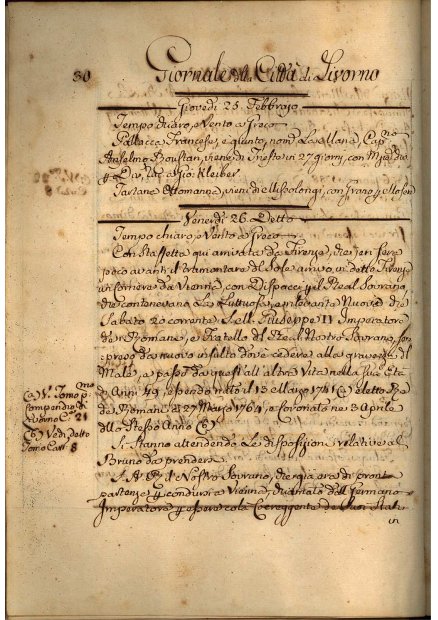 30 Giornale della Città di Livorno
Giovedì 25. Febbrajo
Tempo chiaro, e Vento a Greco
Pollacca Francese, è giunto, nom. La Allana, Capno
Anselmo Boustan, viene di Trieste in 27 giorni, con
a Gio: Kleiber
Tartana Ottomanna, viene di Missolongi, con Grano
Venerdì 26. Detto
Tempo chiaro, e Vento a Greco
Con Staffetta qui arrivata da Firenze, che jeri sera
poco avanti il tramontare del Sole arrivò in detto Firenze
un Corriere da Vienna, con Dispacci pel Real Sovrano,
che contenevano La Luttuosa, e Nuova che
Sabato 20 corrente S. M. Giuseppe II Imperatore
de' Romani, e Fratello del Real Nostro Sovrano, sor-
preso da nuovo insulto dové cedere alla gravezza del
Male, e passò da questa all'altra Vita nella sua Età
d'Anni 49, essendo nato il 13 Marzo 1741 (a) eletto Re
de' Romani a 27 Marzo 1764, e Coronato ne 3 Aprile
dello Stesso Anno (b)
Si stanno attendendo Le disposizioni relative al
Bruno da prendersi
S. A. R. il Nostro Sovrano, che già era di pronta
partenza per condursi a Vienna, chiamato dal Germano
Imperatore per essere colà Coreggente de Suoi Stati,
in
(a) V. Tomo pmo
Compendio di
Livorno C. 21
(b) Vedi detto
Tomo Car. 8